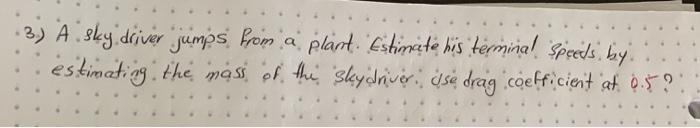 3) A sky driver jumps from a plant. Estimate his terminal speeds by
estimating the mass of the skydriver. Use drag coefficient at 0.5?